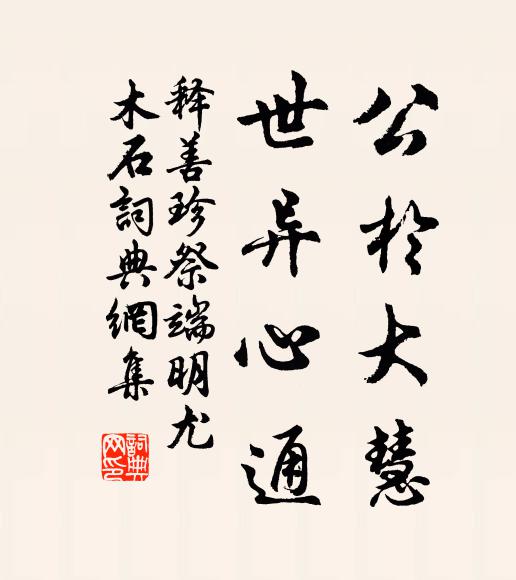 公於大慧
世异心通
释善珍祭端明尤
木石詞典網集
詞典
网印